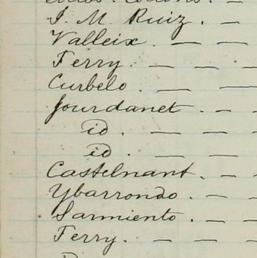 J. M. Ruiz. —
Valleix — — —
Ferry — — —
Curbelo. — —
Jourdanet — —
id — — —
id. — — —
Castelnant. — —
Ybarrondo. — —
Sarmiento. — —
Ferry. — — —